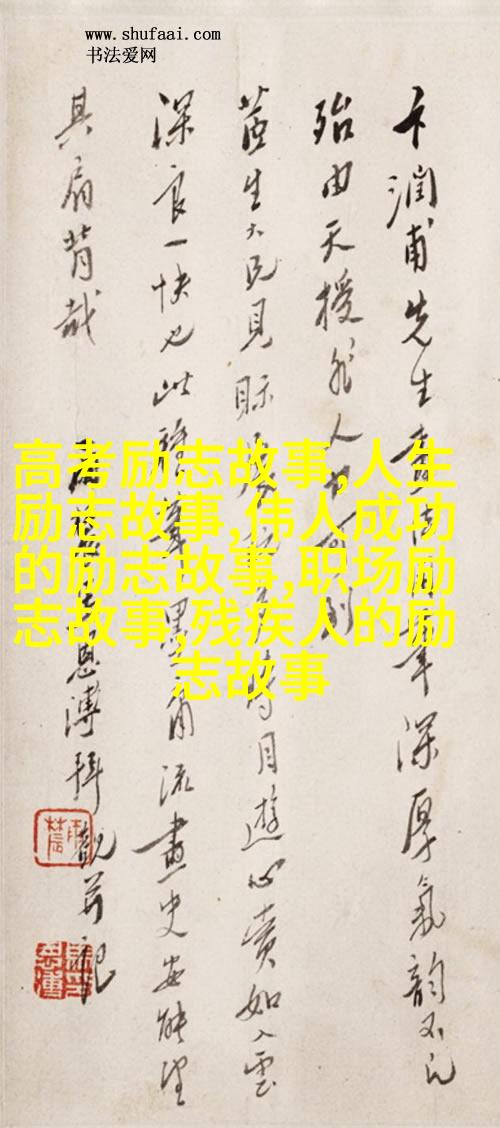 www.shufaai.com
书法爱网
卞潤甫先生畫法用筆深厚氣韻不凡
殆由天授非人
生大兄見眎目遊心賞如入雲
深良一快也此筆墨流畫史安能望
其肩背哉
恩溥拜觀并記
高考励志故事,人生
励志故事,伟人成功
的励志故事,职场励
志故事,残疾人的励
志故事